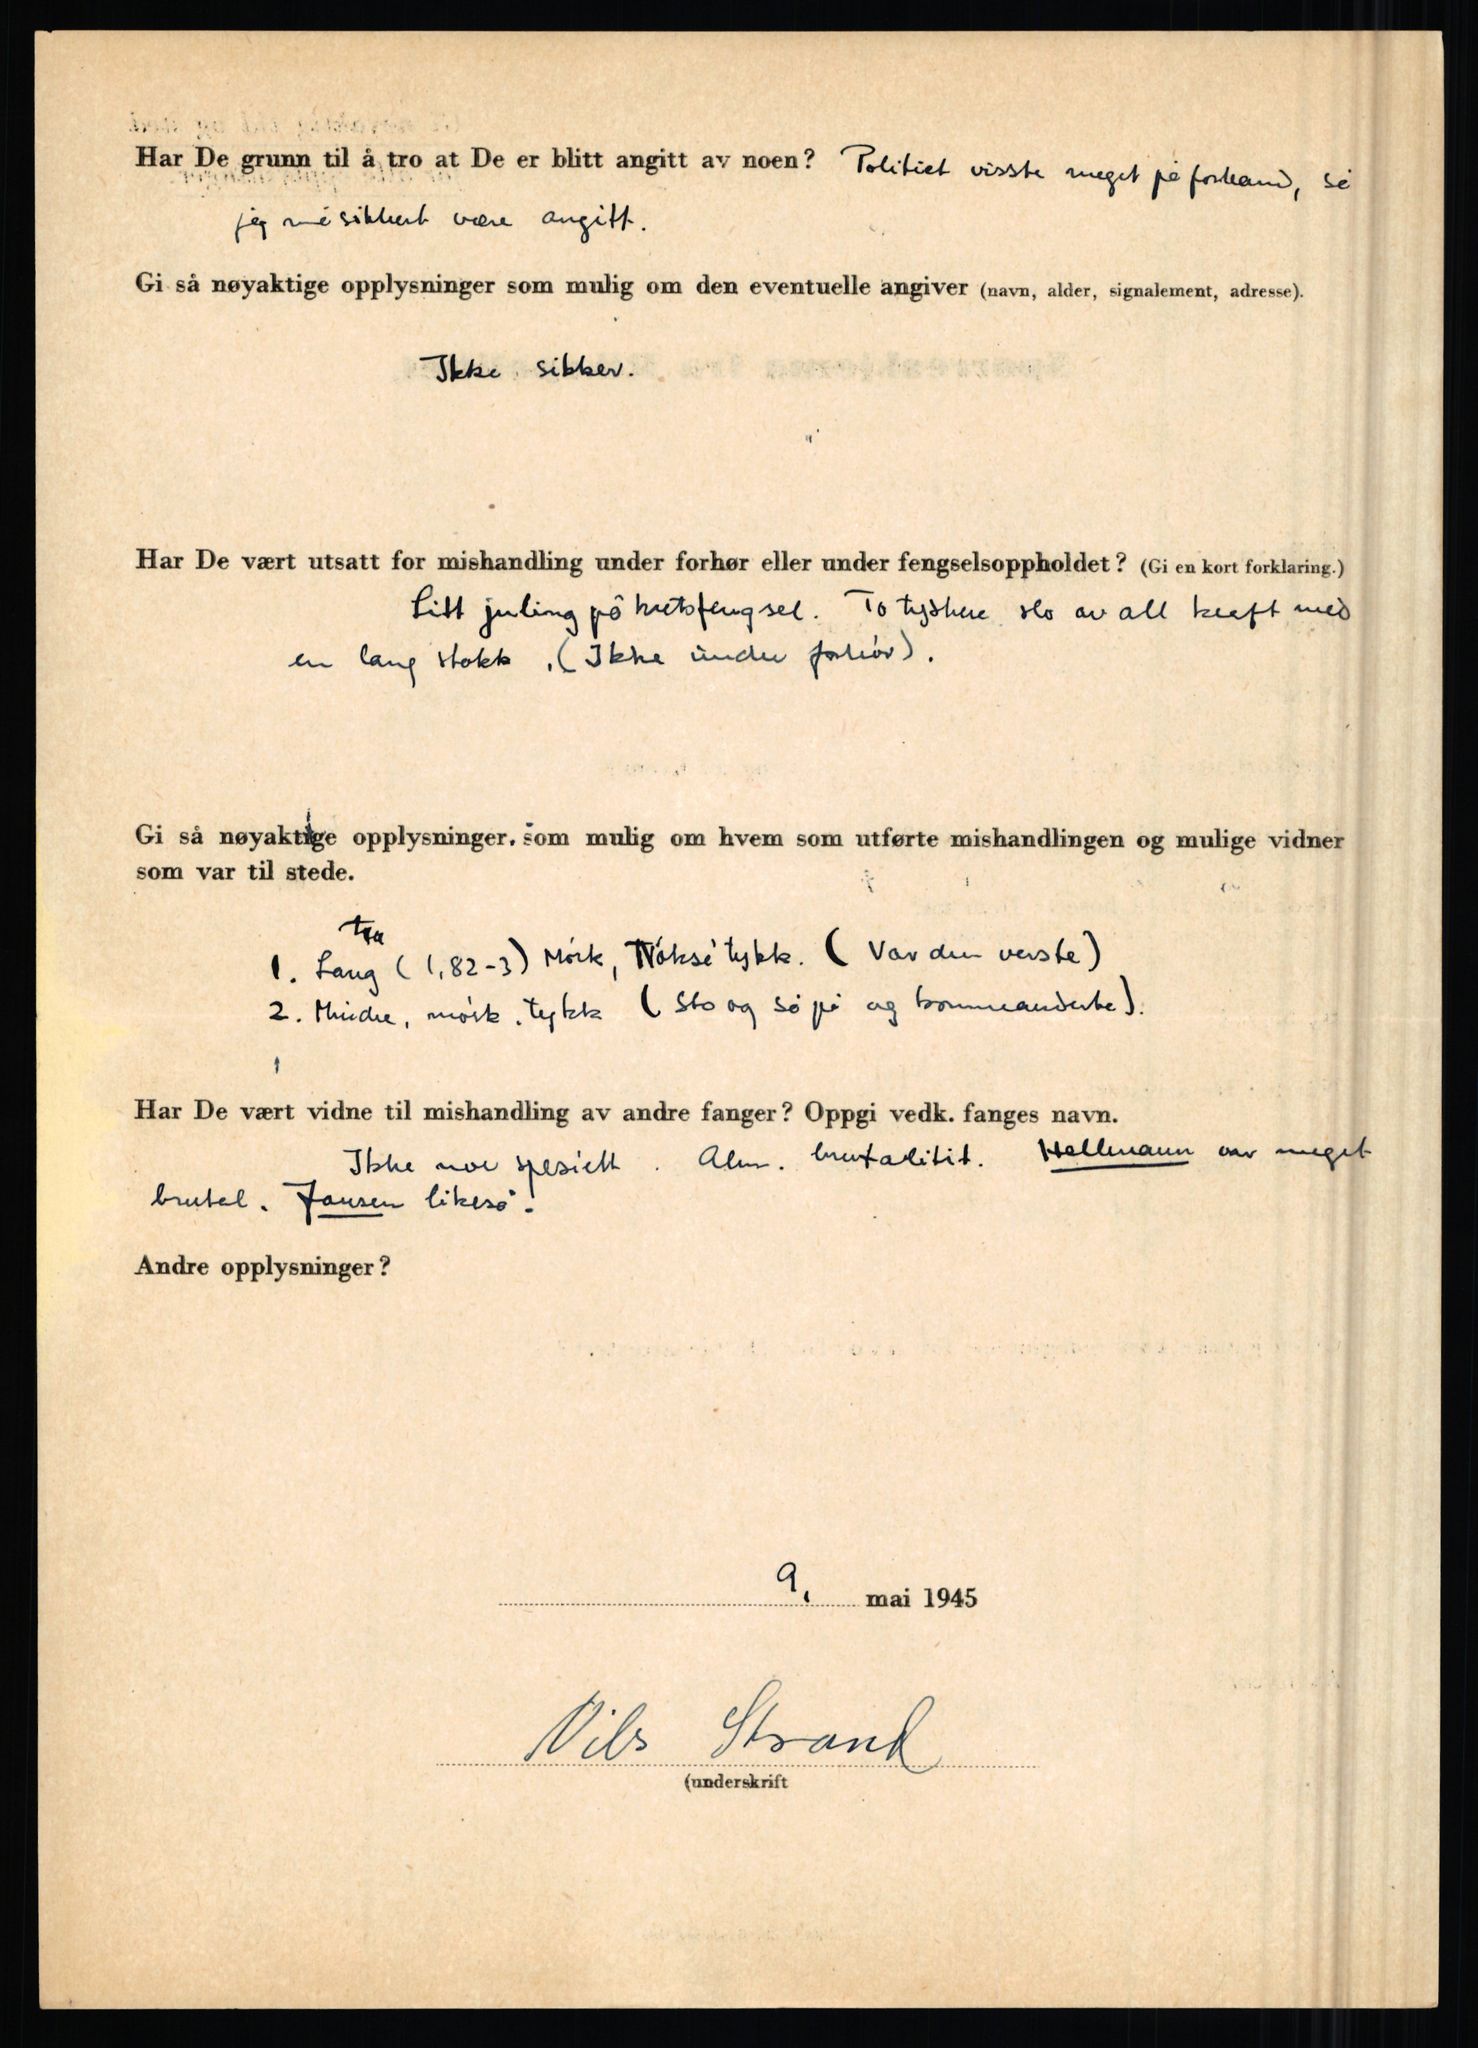 Har De grunn til å tro at De er blitt angitt av noen? Politiet visste meget på forhand, så
jeg må sikkert være angitt.
Gi så nøyaktige opplysninger som mulig om den eventuelle angiver (navn, alder, signalement, adresse).
Ikke sikker.
Har De vært utsatt for mishandling under forhør eller under fengselsoppholdet? (Gi en kort forklaring.)
Litt juling på kretsfengsel. To tyskere slo av all kraft med
en lang stokk. (Ikke under forhør).
Gi så nøyaktige opplysninger. som mulig om hvem som utførte mishandlingen og mulige vidner
som var til stede.
1. Lang (1,82-3) Mørk, Nokså tykk. (Var den verste)
2. Mindre, mørk, tykk (Sto og så på og kommanderte).
Har De vært vidne til mishandling av andre fanger? Oppgi vedk. fanges navn.
Ikke noe spesielt. Alm. brutalitet. Hellmann var meget
brutal. Jansen likeså.
Andre opplysninger?
9. mai 1945
Nils Strand
(underskrift